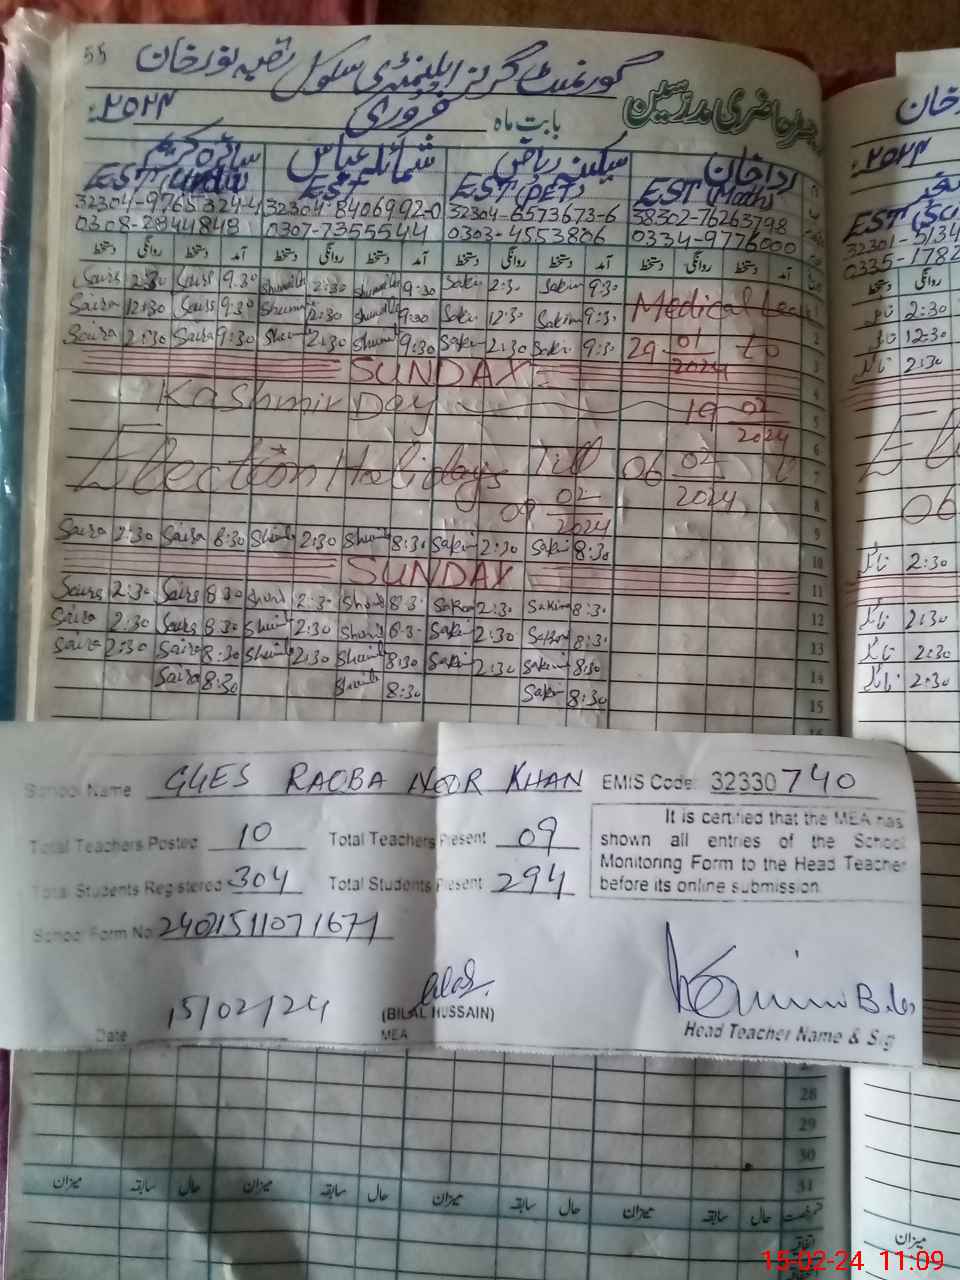 55
گورنمنٹ گرلز ایلیمنٹری سکول رقبہ نور خان
رجسٹر حاضری مدرسین بابت ماہ فروری ۲۰۲۴
ردا خان سکینہ ریاض شمائلہ عباس سائرہ کریم
EST (Urdu) EST EST (PET) EST (Maths)
32304-9765324-4 32304-8406992-0 32304-6573673-6 38302-76263798
0308-2844848 0307-7355544 0303-4553806 0334-9776000
آمد دستخط روانگی دستخط آمد دستخط روانگی دستخط آمد دستخط روانگی دستخط آمد دستخط روانگی دستخط
Saira 2:30 Saira 9:30 Shumila 2:30 Shumila 9:30 Sakin 2:30 Sakin 9:30 Medical Leave
Saira 12:30 Saira 9:30 Shumila 12:30 Shumila 9:30 Sakin 12:30 Sakin 9:30 2
Saira 2:30 Saira 9:30 Shumi 2:30 Shumi 9:30 Sakin 2:30 Sakin 9:30 29 01 2024 to 3
SUNDAY 4
Kashmir Day 19 02 2024 5
Election Holidays Till 06 02 2024 7
09 02 2024 8
Saira 2:30 Saira 8:30 Shumi 2:30 Shumi 8:30 Sakin 2:30 Sakin 8:30 10
SUNDAY 11
Saira 2:30 Saira 8:30 Shumi 2:30 Shumi 8:30 Sakin 2:30 Sakin 8:30 12
Saira 2:30 Saira 8:30 Shumi 2:30 Shumi 8:30 Sakin 2:30 Sakin 8:30 13
Saira 2:30 Saira 8:30 Shumi 2:30 Shumi 8:30 Sakin 2:30 Sakin 8:30 14
Saira 8:30 Shumi 8:30 Sakin 8:30 15
School Name GGES RAQBA NOOR KHAN EMIS Code: 32330740
Total Teachers Posted 10 Total Teachers Present 09
Total Students Registered 304 Total Students Present 294
School Form No. 24021511071671
It is certified that the MEA has
shown all entries of the School
Monitoring Form to the Head Teacher
before its online submission.
Date 15/02/24
(BILAL HUSSAIN)
MEA
Head Teacher Name & Sig
28
29
30
31
حال سابقہ میزان حال سابقہ میزان حال سابقہ میزان حال سابقہ میزان
اتفاقیہ
خان
۲۰۲۴
32301-5134
0335-1782
روانگی دستخط
2:30
12:30
2:30
06
2:30
2:30
2:30
2:30
میزان
15-02-24 11:09